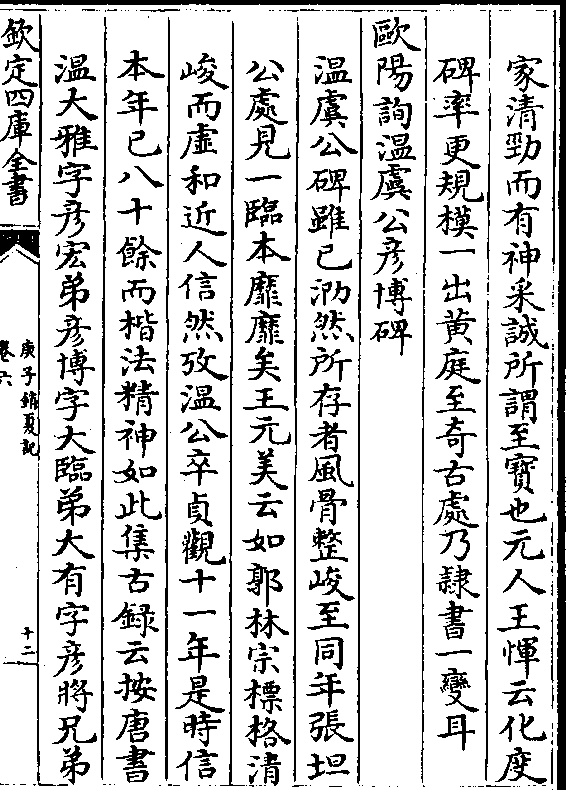 家清勁而有神采誠所謂至寳也元人王惲云化度
碑率更規模一出黄庭至奇古處乃隷書一變耳
歐陽詢温虞公彦博碑
温虞公碑雖已泐然所存者風骨整峻至同年張坦
公處見一臨本靡靡矣王元美云如郭林宗標格清
峻而虚和近人信然攷温公卒貞觀十一年是時信
本年已八十餘而楷法精神如此集古録云按唐書
温大雅字彦宏弟彦博字大臨弟大有字彦將兄弟
欽定四庫全書
庚子銷夏記
卷六
十二